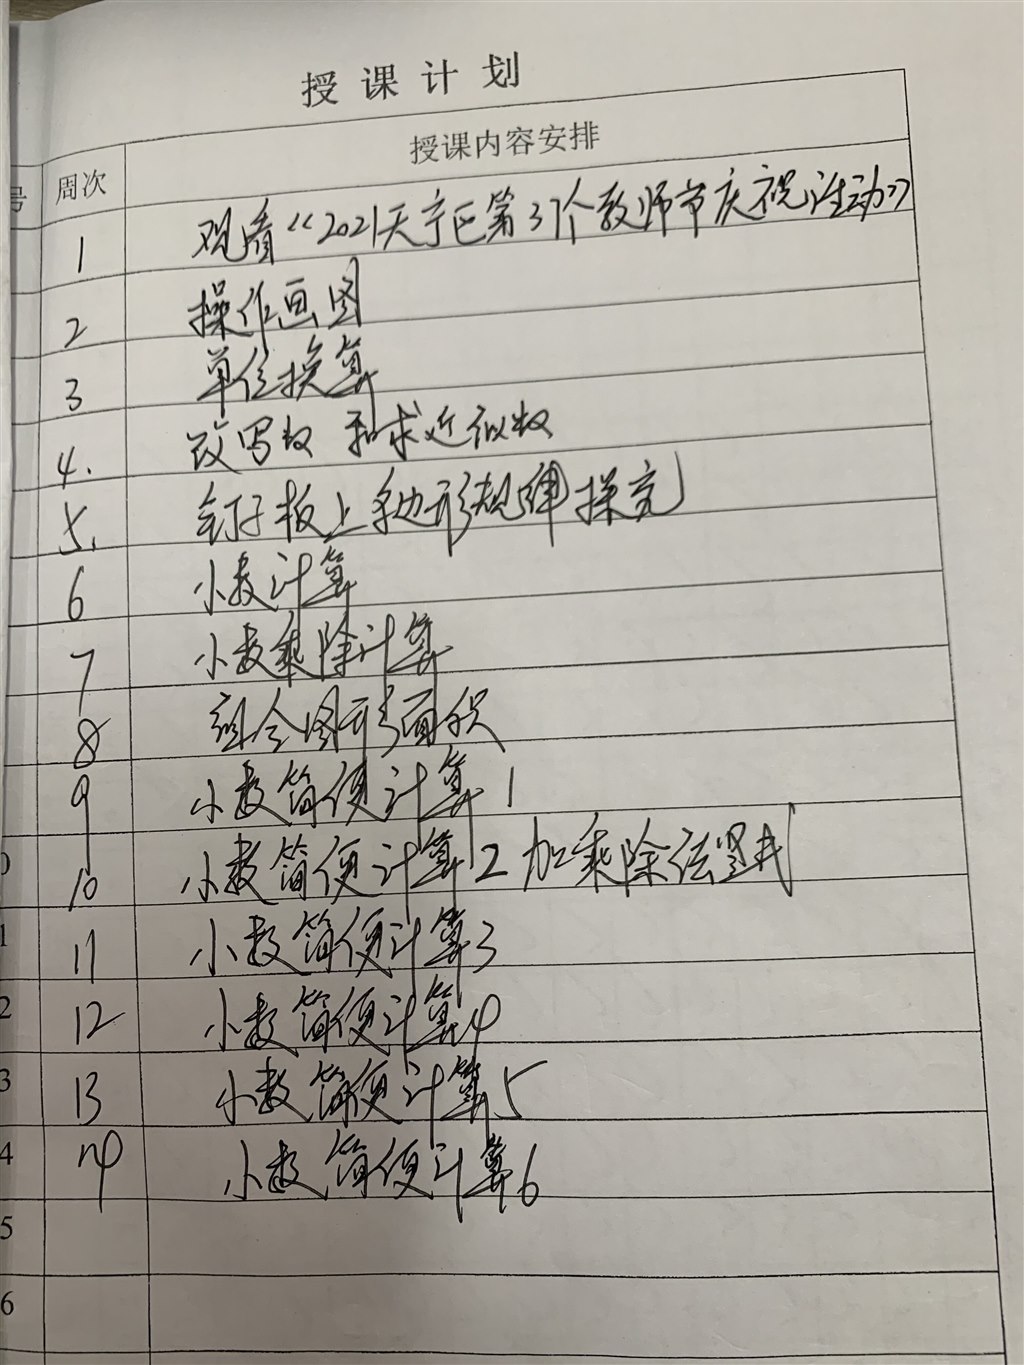 授课计划
号 周次 授课内容安排
1 观看“2021天宁区第37个教师节庆祝活动”
2 操作画图
3 单位换算
4. 改写数 和求近似数
5. 钉子板上多边形规律探究
6 小数计算
7 小数乘除计算
8 组合图形面积
9 小数简便计算1
0 10 小数简便计算2 加乘除法竖式
1 11 小数简便计算3
2 12 小数简便计算4
3 13 小数简便计算5
4 14 小数简便计算6
5
6